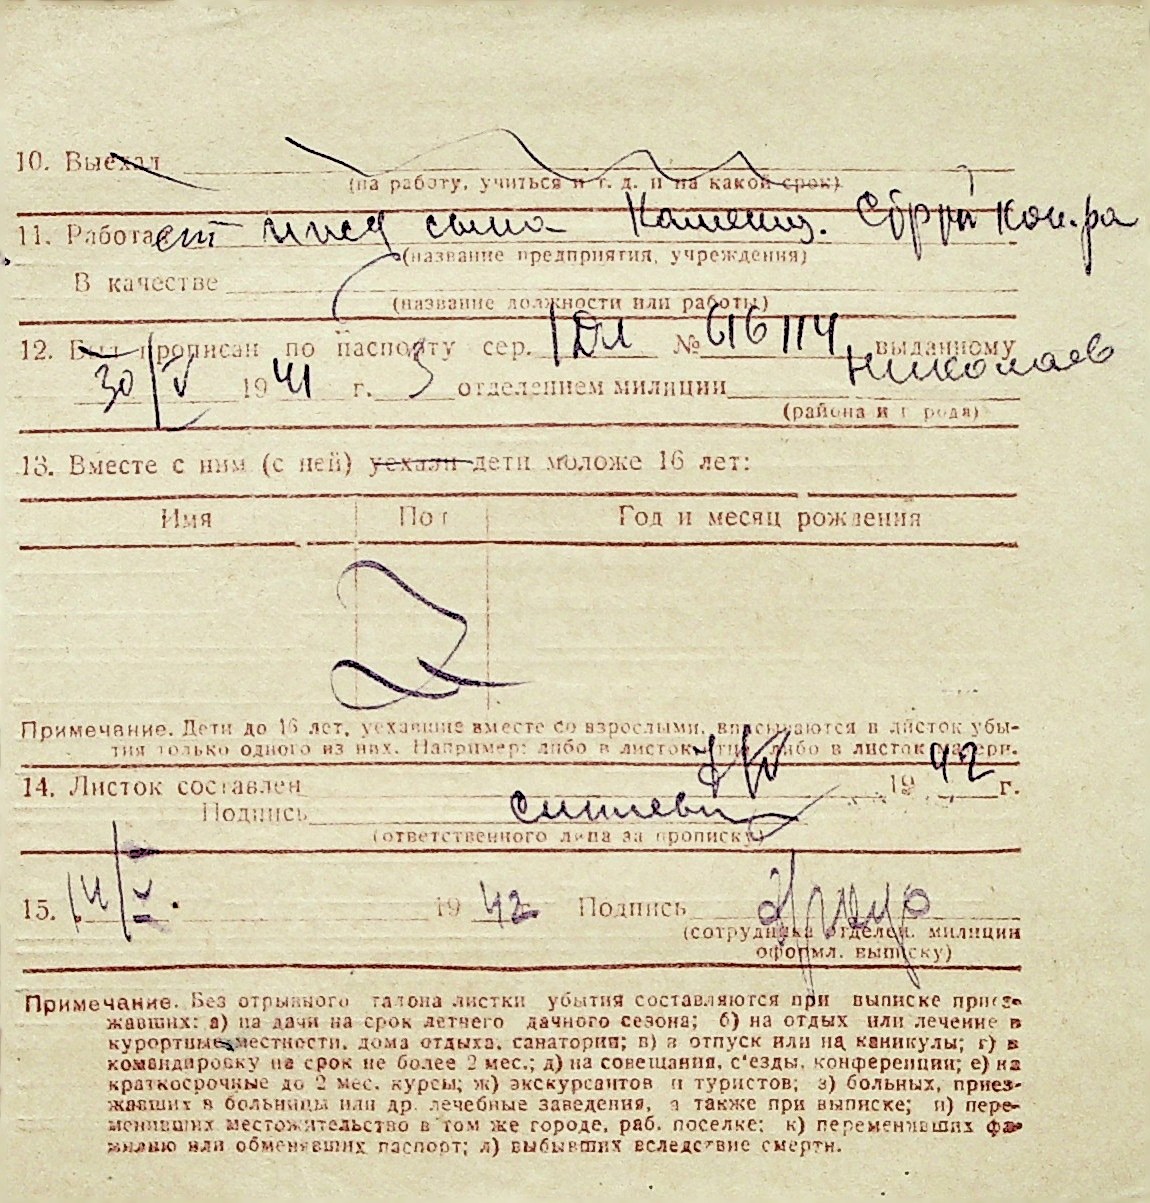 10. Выехал
(на работу, учиться и т. д. и на какой срок)
11. Работает
(название предприятия, учреждения)
В качестве
(название должности или работы)
12. Был прописан по паспорту сер. № 616114 выданному
30/V 1941 г. 3 отделением милиции Николаев
(района и города)
13. Вместе с ним (с ней) уехали дети моложе 16 лет:
Имя Пол Год и месяц рождения
Примечание. Дети до 16 лет, уехавшие вместе со взрослыми, вписываются в листок убы-
тия только одного из них. Например: либо в листок отца, либо в листок матери.
14. Листок составлен 7/IV 1942 г.
Подпись
(ответственного лица за прописку)
15. 14/V. 1942 Подпись
(сотрудника отделен. милиции
оформл. выписку)
Примечание. Без отрывного талона листки убытия составляются при выписке приез-
жавших: а) на дачи на срок летнего дачного сезона; б) на отдых или лечение в
курортные местности, дома отдыха, санатории; в) в отпуск или на каникулы; г) в
командировку на срок не более 2 мес.; д) на совещания, с'езды, конференции; е) на
краткосрочные до 2 мес. курсы; ж) экскурсантов и туристов; з) больных, приез-
жавших в больницы или др. лечебные заведения, а также при выписке; и) пере-
менивших местожительство в том же городе, раб. поселке; к) переменивших фа-
милию или обменявших паспорт; л) выбывших вследствие смерти.